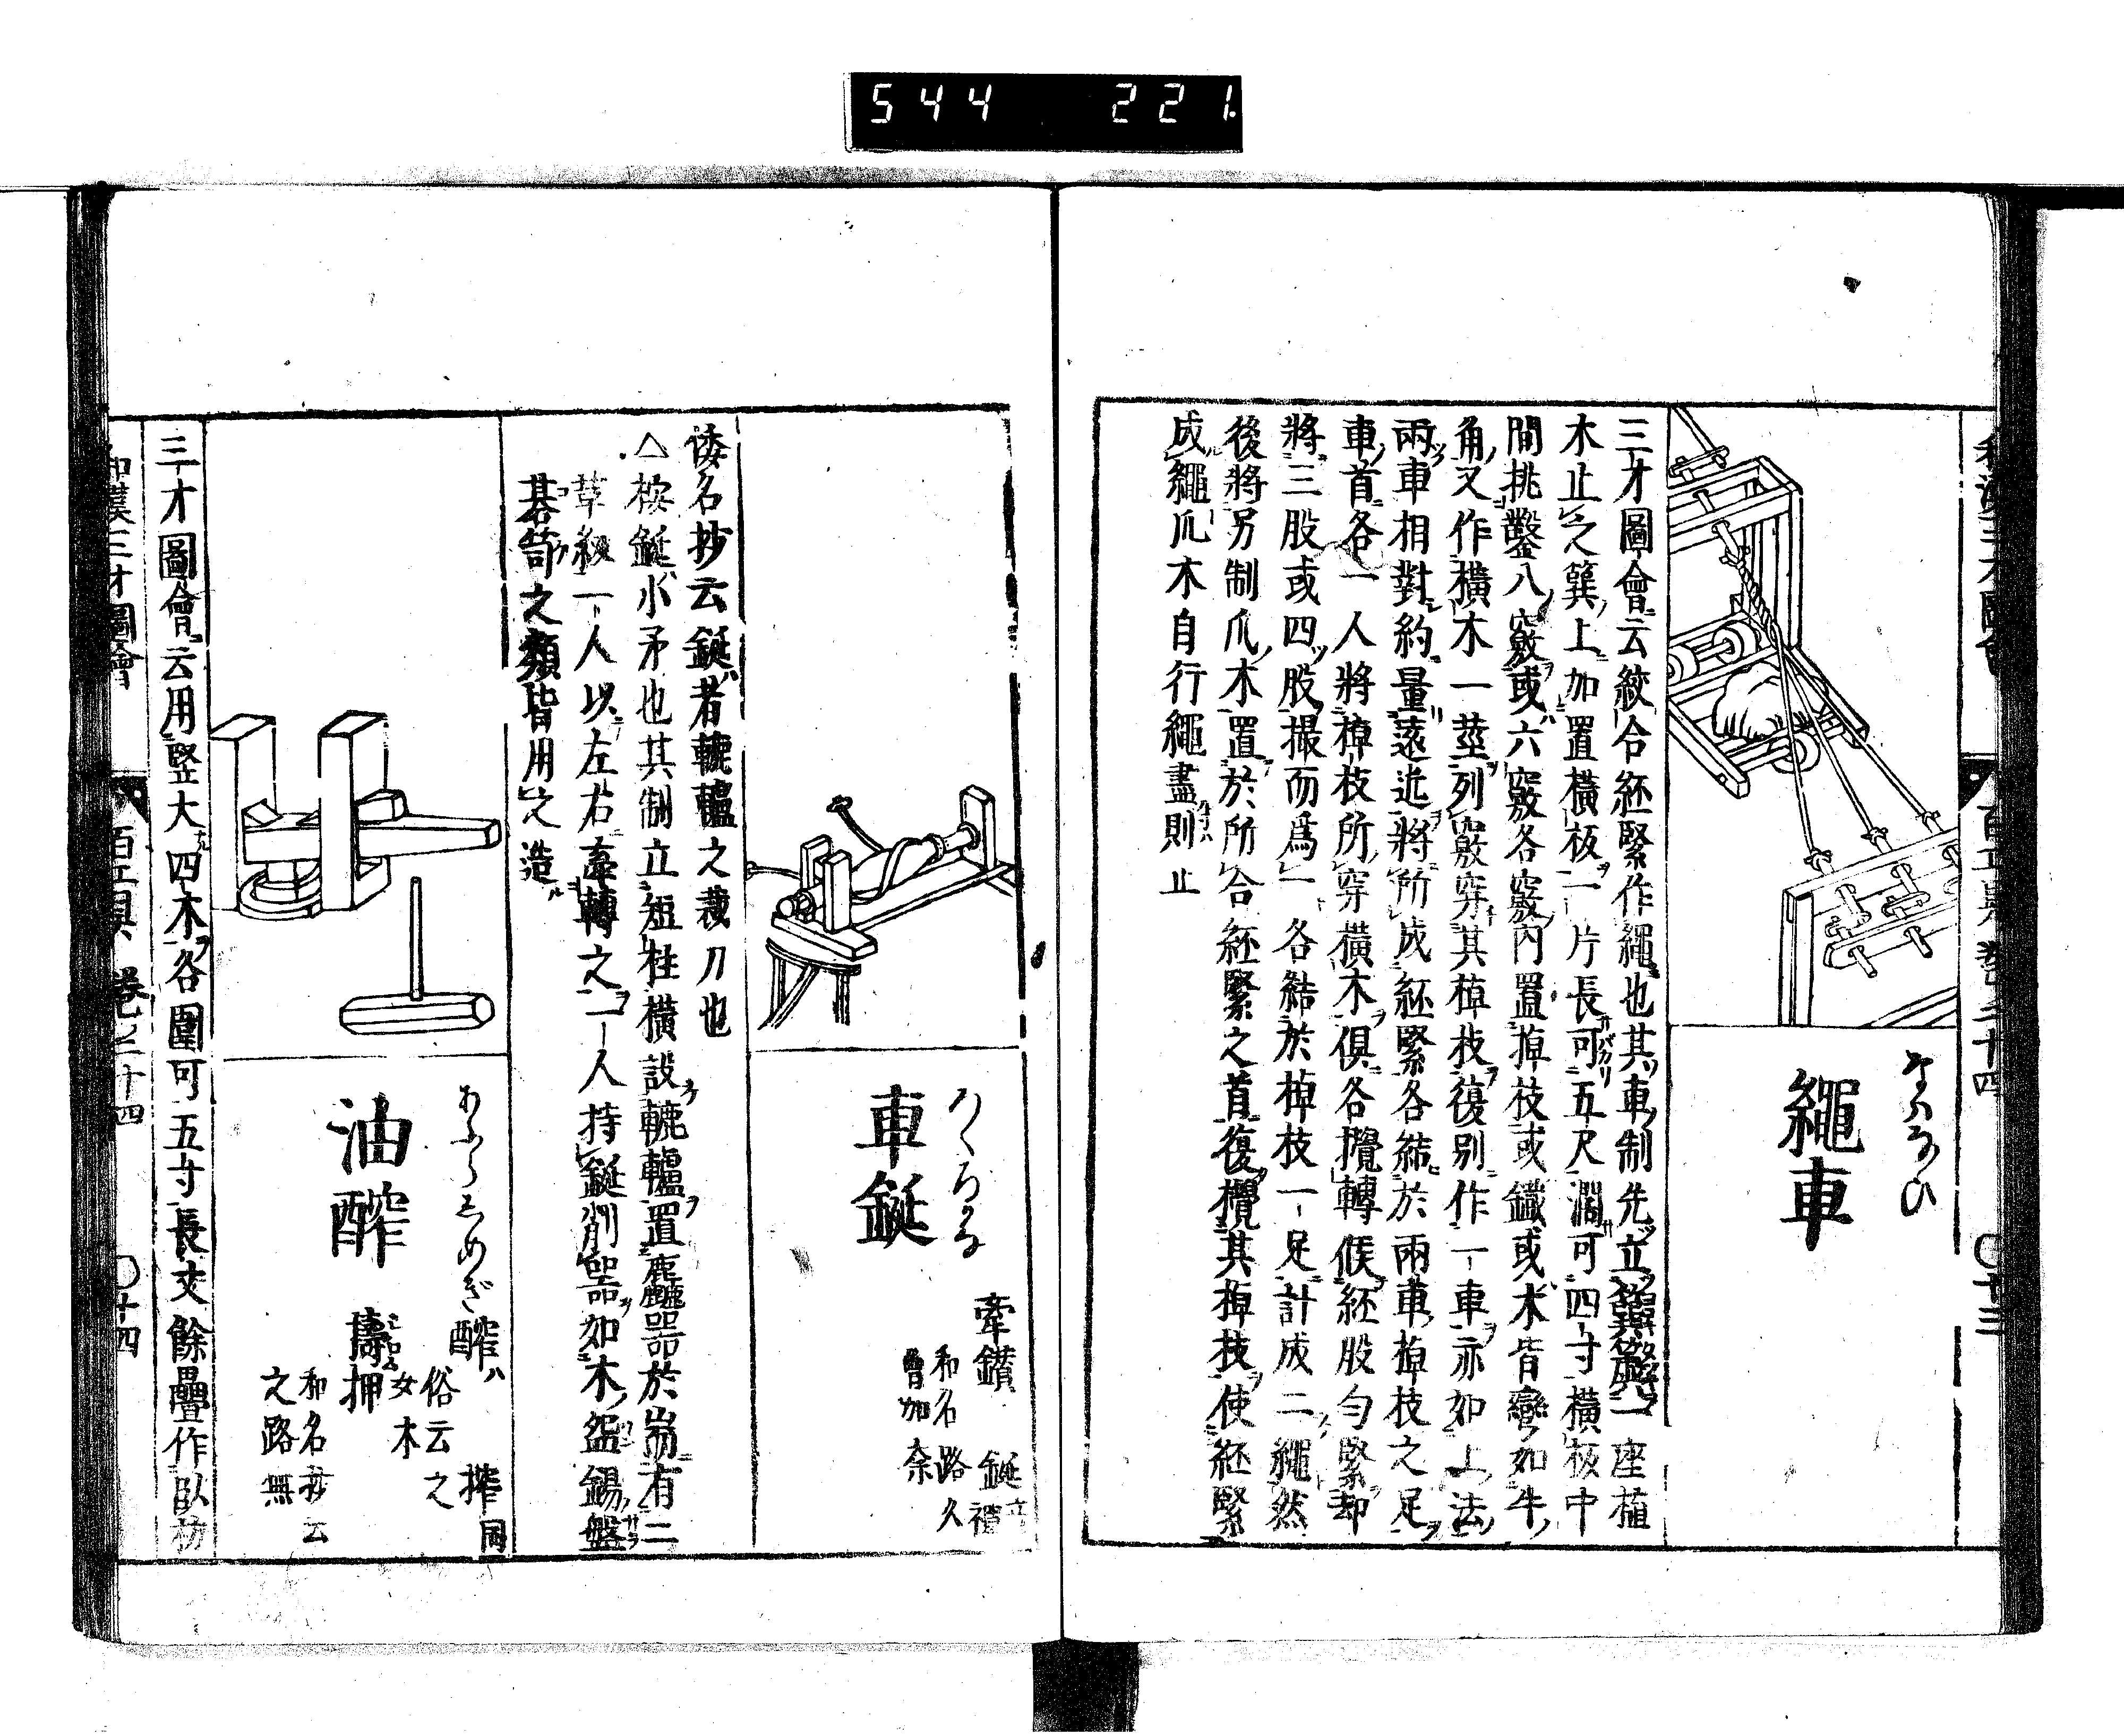 544 221
なはなひ
繩車
三才圖會云絞合紝緊作繩也其車制先立簨簴一座植
木止之簨上加置橫板一片長可五尺濶可四寸橫板中
間挑鑿八竅或六竅各竅內置掉枝或鐵或木皆彎如牛
角又作橫木一莖列竅穿其掉枝復別作一車亦如上法
兩車相對約量遠近將所成紝緊各結於兩車掉枝之足
車首各一人將掉枝所穿橫木俱各攪轉候紝股勻緊却
將三股或四股撮而爲一各結於掉枝一足計成二繩然
後將另制爪木置於所合紝緊之首復攪其掉枝使紝緊
成繩爪木自行繩盡則止
百工具 卷二十四 〇十三
ろくろがな
車鋋
牽鑽
鋋
和名路久
曾加奈
倭名抄云鋋者轆轤之裁刀也
△桉鋋小矛也其制立短柱橫設轆轤置麤器於耑有二
革緪一人以左右牽轉之一人持鋋削器如木盌錫盤
碁笥之類皆用之造
あぶらしめぎ
油醡
醡 搾同
俗云之
女木
擣押
和名抄云
之路無
三才圖會云用竪大四木各圍可五寸長丈餘疊作臥枋
和漢三才圖會 百工具 卷之二十四 〇十四